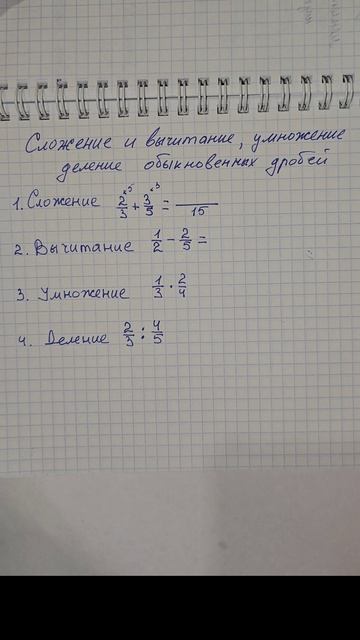 Сложение и вычитание, умножение
деление обыкновенных дробей
1. Сложение 2/3 ˣ⁵ + 3/5 ˣ³ = /15
2. Вычитание 1/2 - 2/5 =
3. Умножение 1/3 · 2/4
4. Деление 2/3 : 4/5